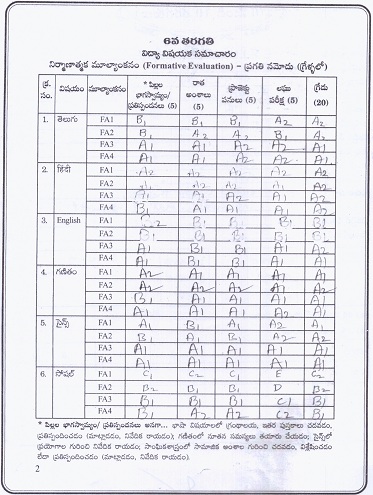 6వ తరగతి
విద్యా విషయక సమాచారం
నిర్మాణాత్మక మూల్యాంకనం (Formative Evaluation) – ప్రగతి నమోదు (గ్రేళ్ళలో)
క్ర. సం. విషయం మూల్యాంకనం * పిల్లల భాగస్వామ్యం/ ప్రతిస్పందనలు (5) రాత అంశాలు (5) ప్రాజెక్టు పనులు (5) లఘు పరీక్ష (5) గ్రేడు (20)
1. తెలుగు FA1 B1 B1 B1 A2 A2
FA2 B1 A2 A2 B1 A2
FA3 A1 A1 A2 A2 A1
FA4 A1 A1 A2 A2 A1
2. హిందీ FA1 A2 A2 A2 A2
FA2 A2 A1 A1 A2
FA3 A1 A1 A1 A2
FA4 B1 A1 A1 A1 A2
3. English FA1 B1 B1
FA2 B1 B1 B1 B1
FA3 A1 B1 B1 A1 A1
FA4 A1 B1 B1 A1 A1
4. గణితం FA1 A2 A1 A1 A1 A1
FA2 A2 A2 A2 A2 A2
FA3 B1 A1 A1 A1 A1
FA4 A1 A1 A1 A1 A1
5. సైన్స్ FA1 A1 B1 A1 A2 A1
FA2 A1 A1 A1
FA3 A1 A1 A1 A1 A1
FA4 A2 A1 A1 A1 A1
6. సోషల్ FA1 C1 C1 C1 E C2
FA2 B2 B1 B1 D B2
FA3 B1 B1 B1 C1 B1
FA4 A1 A2 A1
* పిల్లల భాగస్వామ్యం/ ప్రతిస్పందనలు అనగా... భాషా విషయాలలో గ్రంథాలయ, ఇతర పుస్తకాలు చదవడం,
ప్రతిస్పందించడం (మాట్లాడడం, నివేదిక రాయడం); గణితంలో నూతన సమస్యలు తయారు చేయడం; సైన్స్‌లో
ప్రయోగాల గురించి నివేదిక రాయడం; సాంఘికశాస్త్రంలో సామాజిక అంశాల గురించి చదవడం, విశ్లేషించడం
లేదా ప్రతిస్పందించడం (మాట్లాడడం, నివేదిక రాయడం).
2